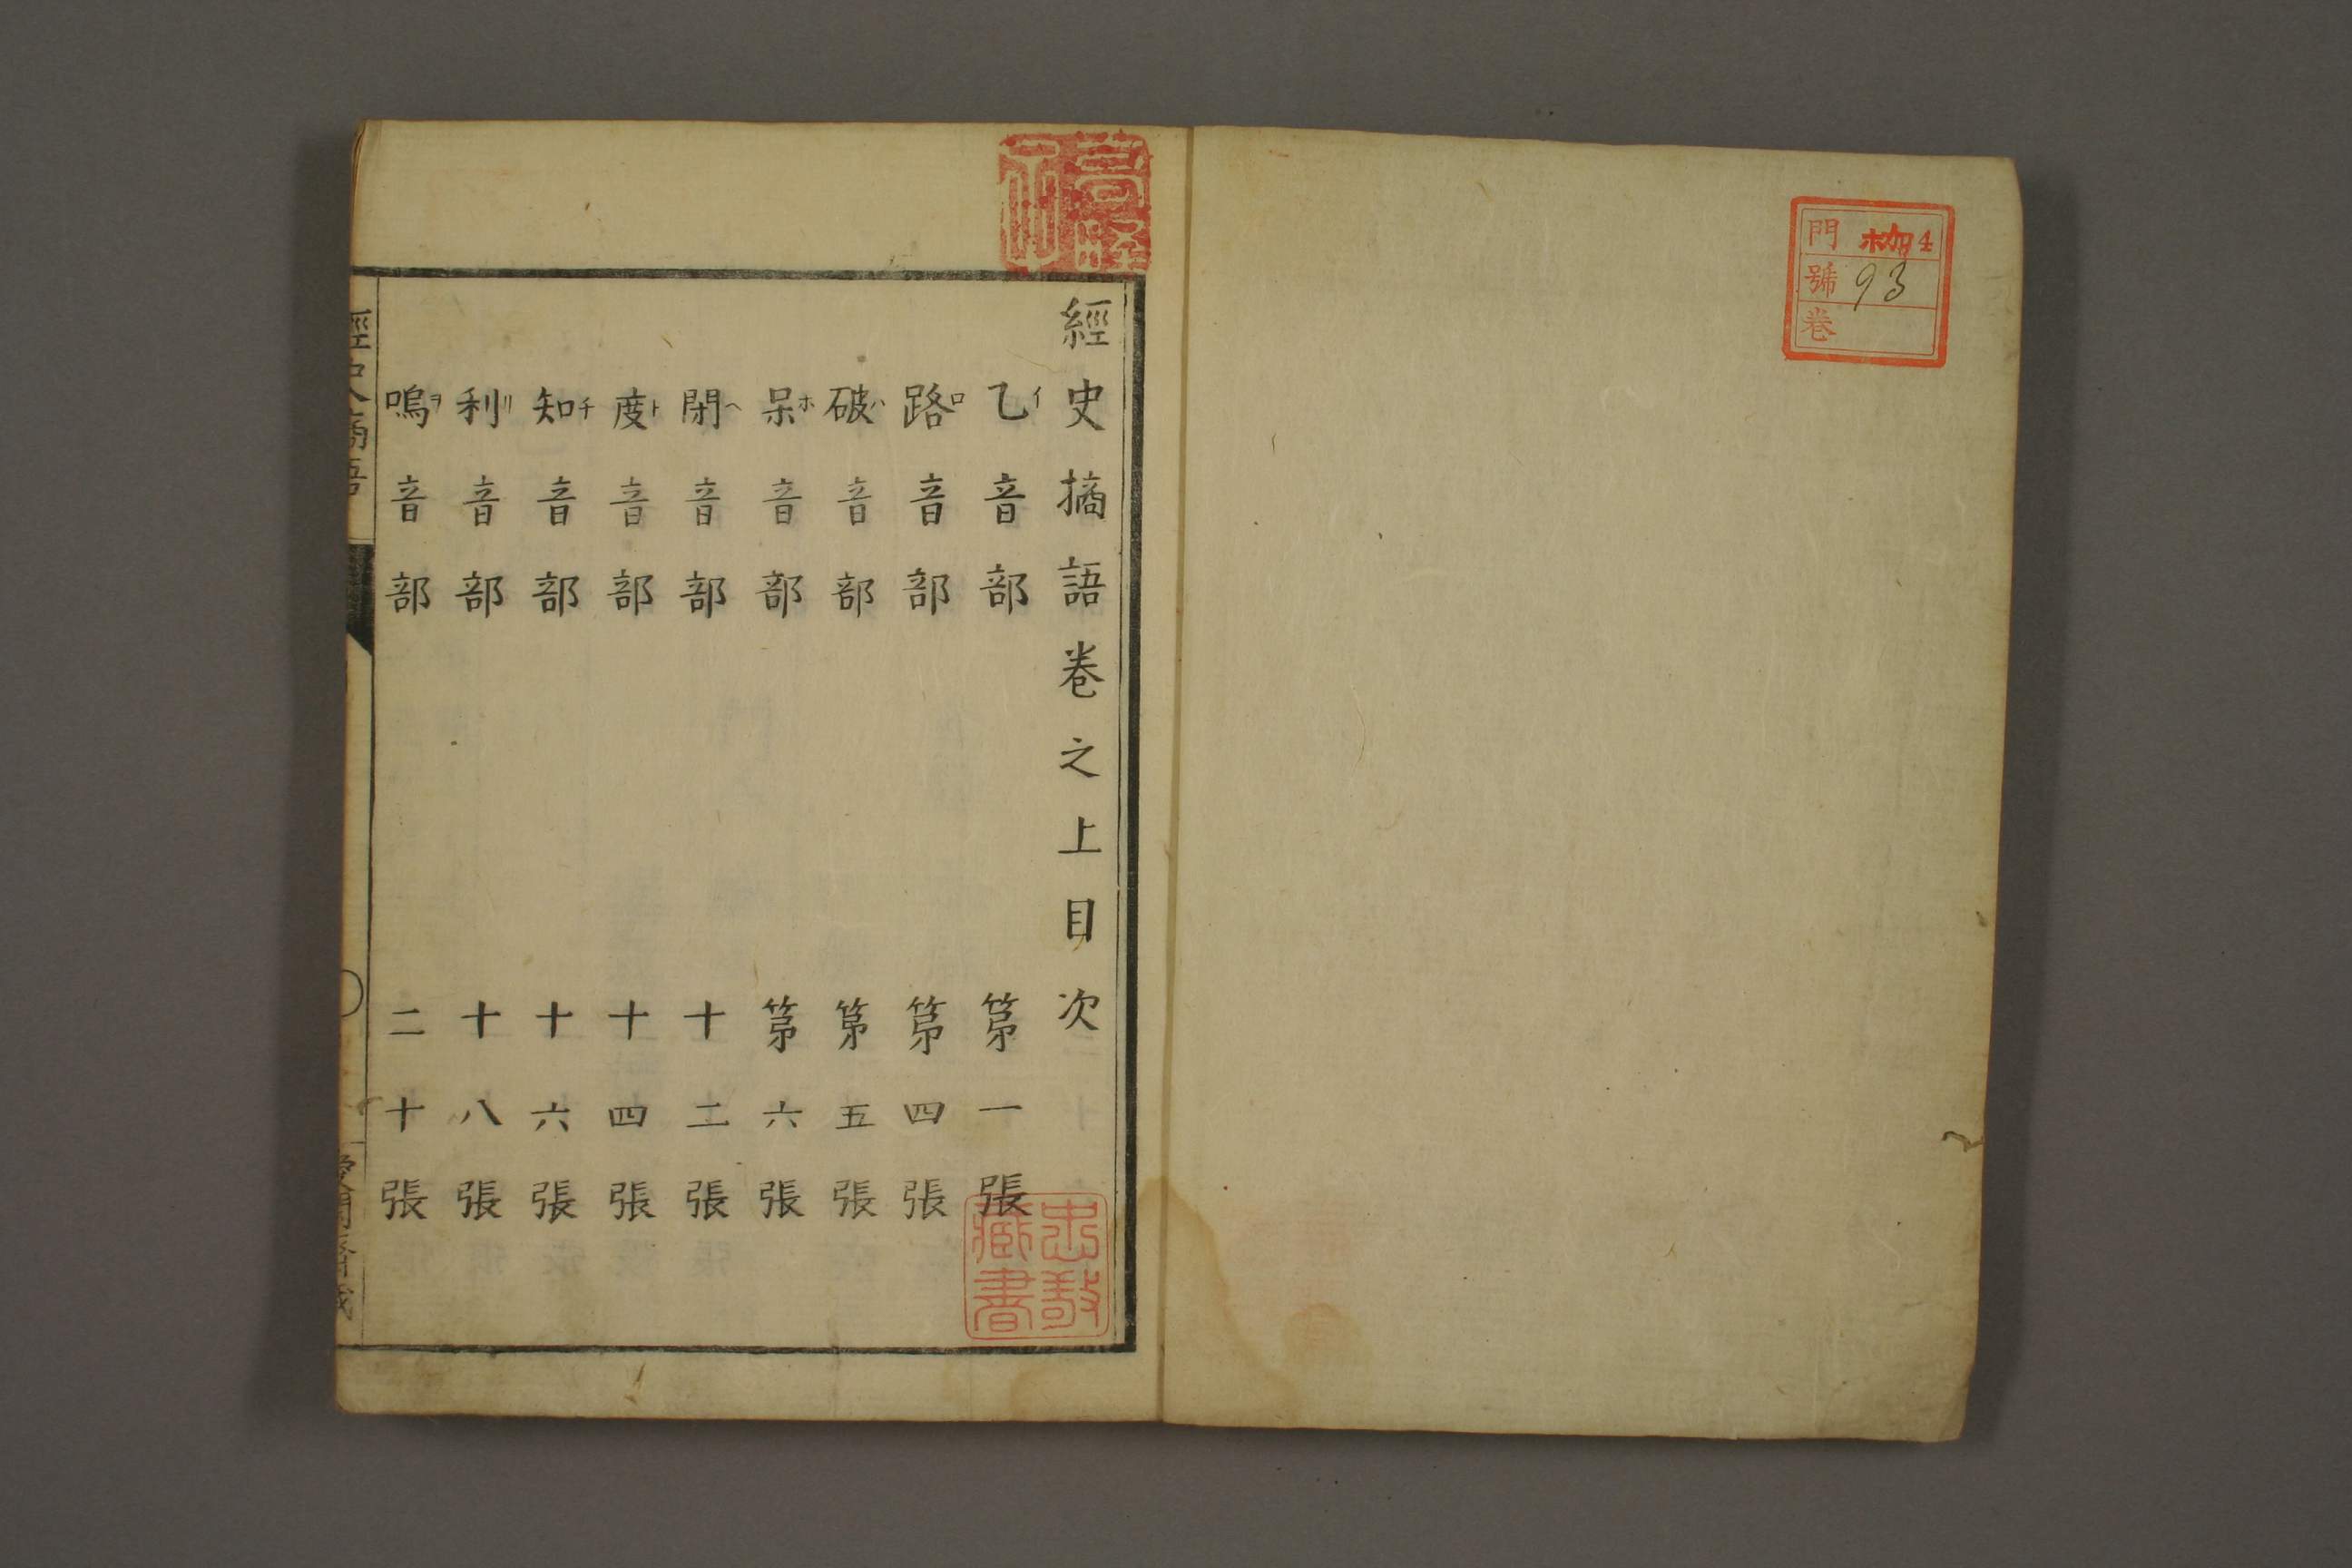 門 4
號 93
卷
經史摘語卷之上目次
乙イ音部 第一張
路ロ音部 第四張
破ハ音部 第五張
呆ホ音部 第六張
閉ヘ音部 十二張
度ト音部 十四張
知チ音部 十六張
利リ音部 十八張
嗚ヲ音部 二十張
忠敬
藏書
經史摘語